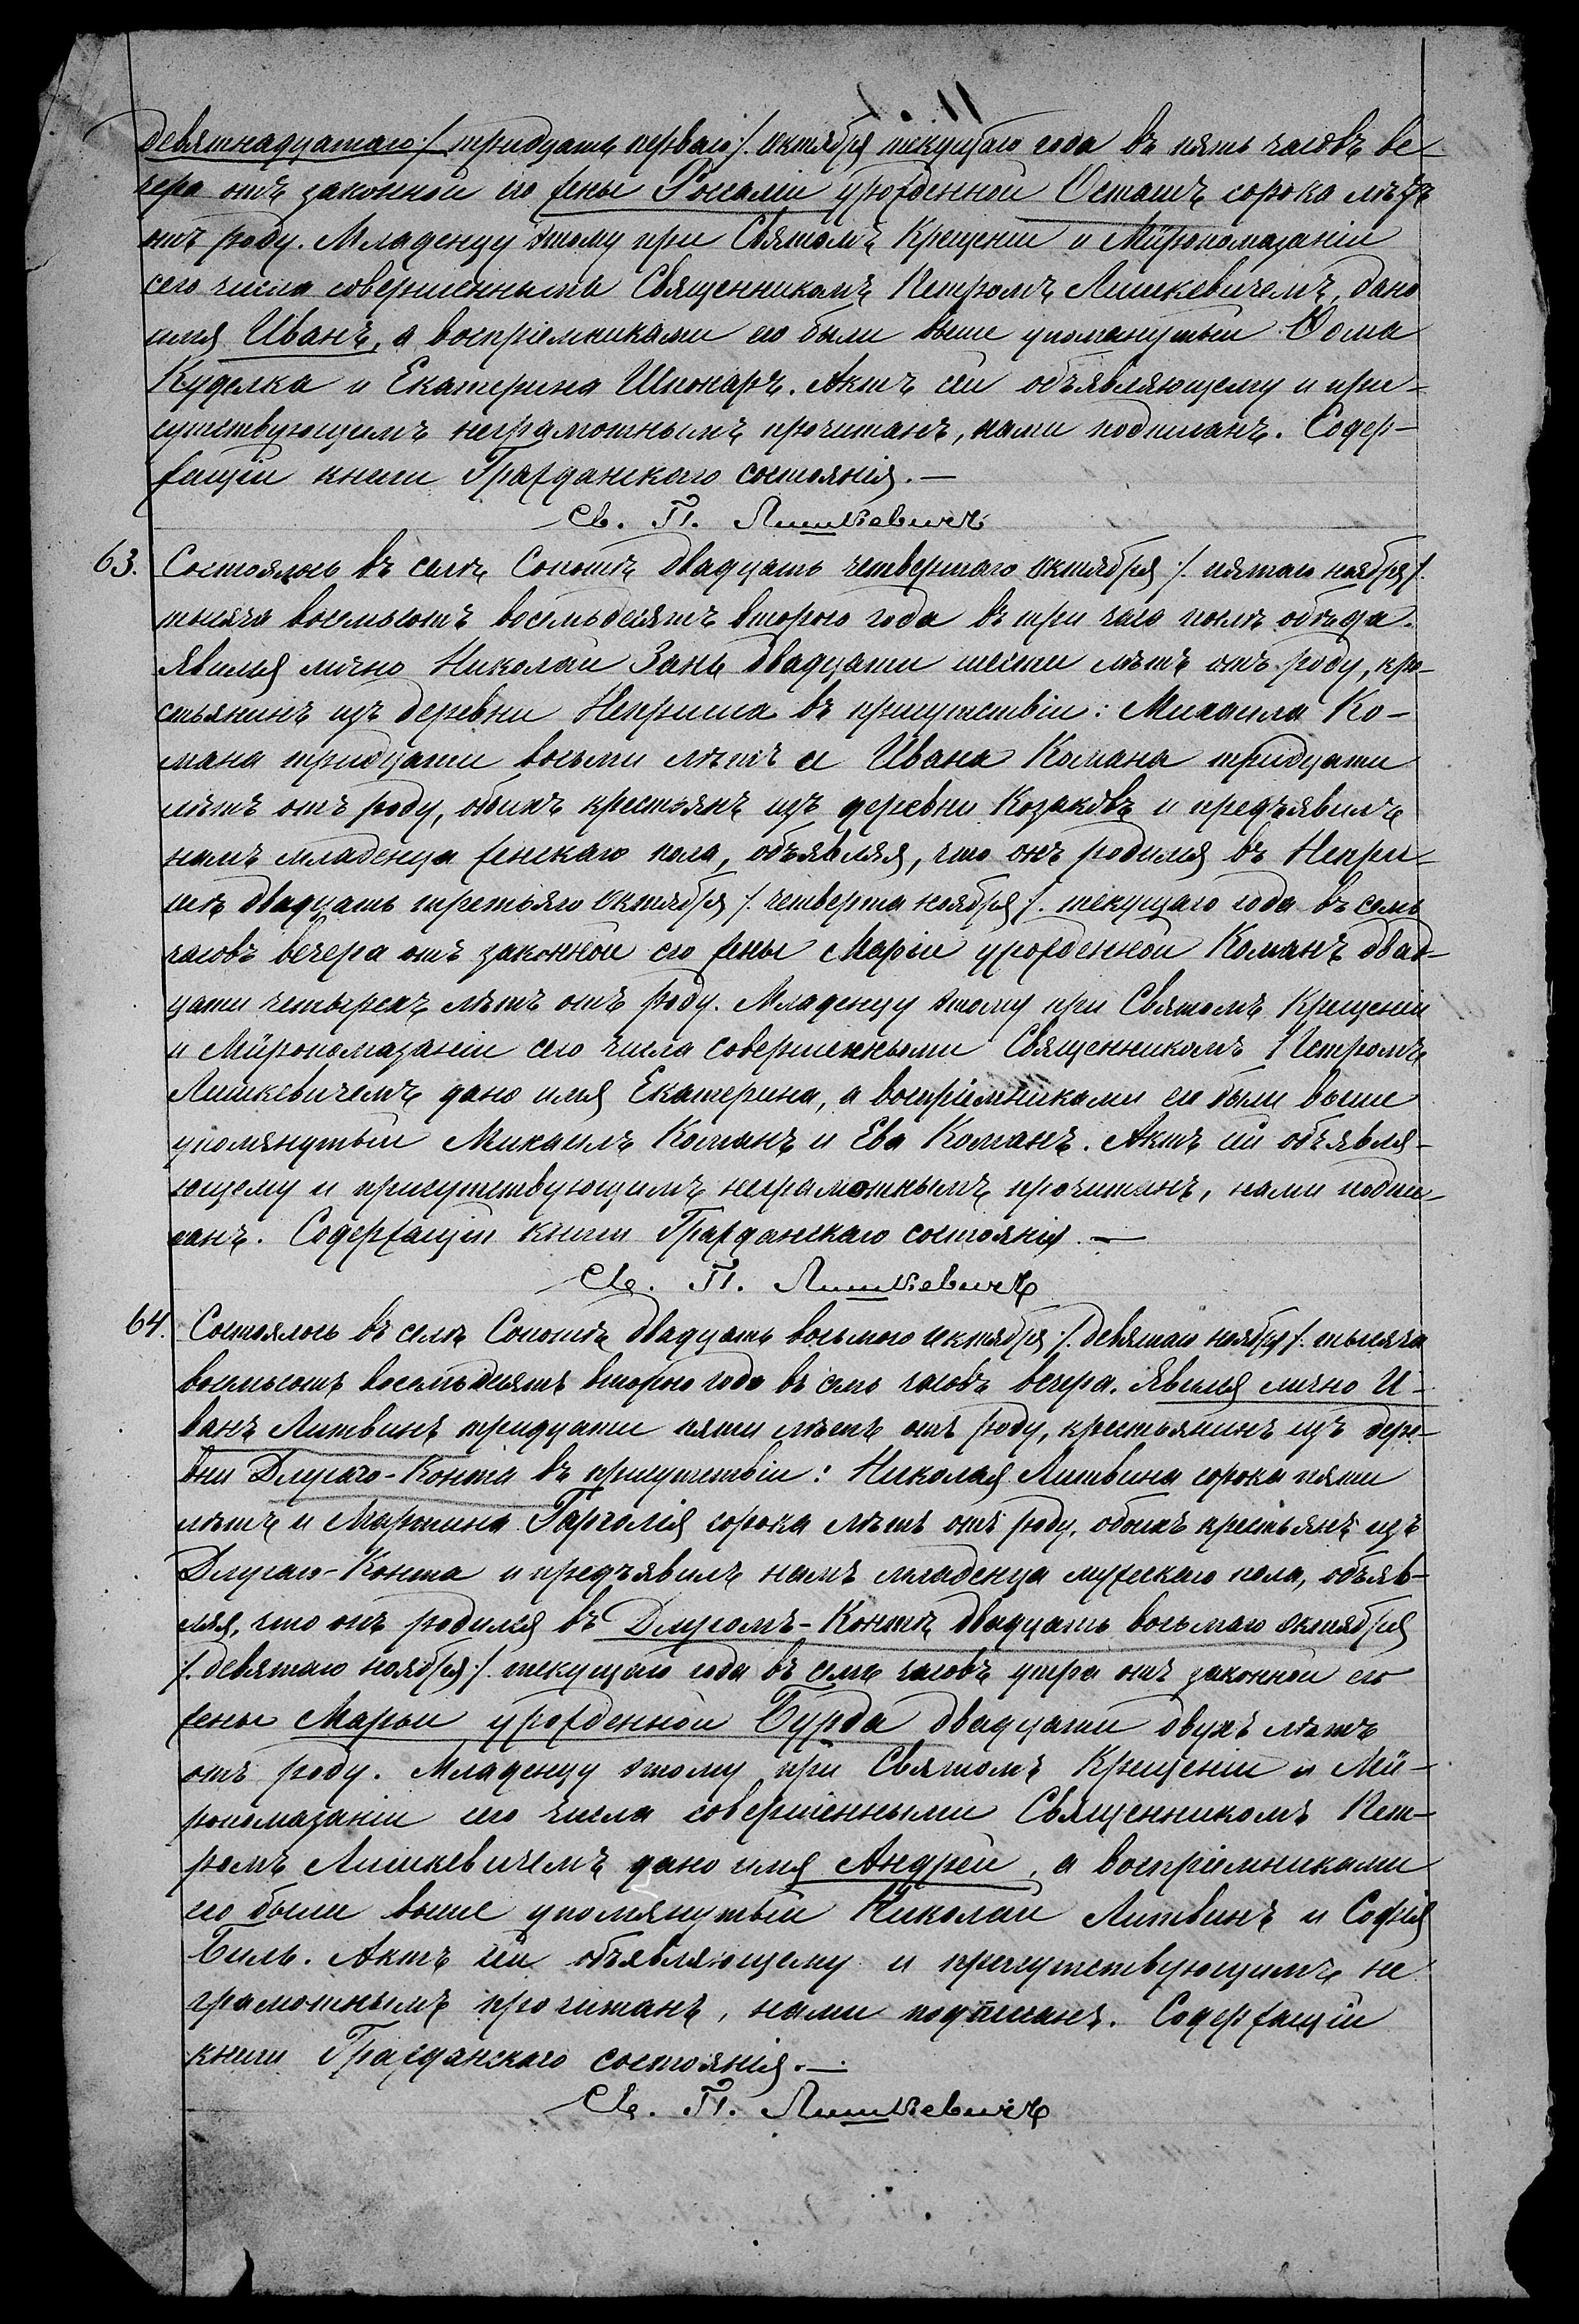 девятнадцатаго /. тридцать перваго /. октября текущаго года въ пять часовъ ве-
чера отъ законной его жены Розаліи урожденной Осташъ сорока лѣтъ
отъ роду. Младенцу этому при Святомъ Крещеніи и Мѵропомазаніи
сего числа совершеннымъ Священникомъ Петромъ Лишкевичемъ, дано
имя Иванъ, а воспріемниками его были выше упомянутый Ѳома
Куделка и Екатерина Шпонаръ. Актъ сей объявляющему и при-
сутствующимъ неграмотнымъ прочитанъ, нами подписанъ. Содер-
жащій книги Гражданскаго состоянія. —
Св. П. Лишкевичъ
63. Состоялось въ селѣ Сопотѣ двадцать четвертаго октября /. пятаго ноября /.
тысяча восемьсотъ восемьдесятъ второго года въ три часа послѣ обѣда.
Явился лично Николай Зань двадцати шести лѣтъ отъ роду, кре-
стьянинъ изъ деревни Неприша въ присутствіи: Михаила Ко-
мана тридцати восьми лѣтъ и Ивана Комана тридцати
лѣтъ отъ роду, обыхъ крестьянъ изъ деревни Козаковъ и предъявилъ
намъ младенца женскаго пола, объявляя, что онъ родился въ Непри-
шѣ двадцать третьяго октября /. четверта ноября /. текущаго года въ семь
часовъ вечера отъ законной его жены Маріи урожденной Команъ двад-
цати четырехъ лѣтъ отъ роду. Младенцу этому при Святомъ Крещеніи
и Мѵропомазаніи сего числа совершенными Священникомъ Петромъ
Лишкевичемъ дано имя Екатерина, а воспріемниками ея были выше
упомянутый Михаилъ Команъ и Ева Команъ. Актъ сей объявля-
ющему и присутствующимъ неграмотнымъ прочитанъ, нами подпи-
санъ. Содержащій книги Гражданскаго состоянія. —
Св. П. Лишкевичъ
64. Состоялось въ селѣ Сопотѣ двадцать восьмого октября /. девятаго ноября /. тысяча
восемьсотъ восемьдесятъ второго года въ семь часовъ вечера. Явился лично И-
ванъ Литвинъ тридцати пяти лѣтъ отъ роду, крестьянинъ изъ дере-
вни Длугаго-Конта въ присутствіи: Николая Литвина сорока пяти
лѣтъ и Мартина Гарголія сорока лѣтъ отъ роду, обыхъ крестьянъ изъ
Длугаго-Конта и предъявилъ намъ младенца мужескаго пола, объяв-
ляя, что онъ родился въ Длугомъ-Контѣ двадцать восьмаго октября
/. девятаго ноября /. текущаго года въ семь часовъ утра отъ законной его
жены Марьи урожденной Бурда двадцати двухъ лѣтъ
отъ роду. Младенцу этому при Святомъ Крещеніи и Мѵ-
ропомазаніи сего числа совершенными Священникомъ Пет-
ромъ Лишкевичемъ дано имя Андрей, а воспріемниками
его были выше упомянутый Николай Литвинъ и Софія
Биль. Актъ сей объявляющему и присутствующимъ не
грамотнымъ прочитанъ, нами подписанъ. Содержащій
книги Гражданскаго состоянія. —
Св. П. Лишкевичъ